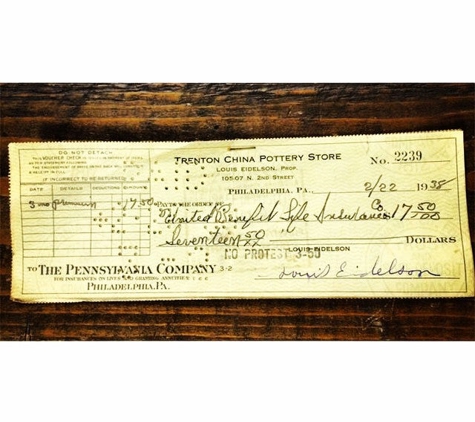 DO NOT DETACH
THIS VOUCHER CHECK IS IN PAYMENT OF
AS PER STATEMENT FOLLOWING
IF INCORRECT TO BE RETURNED
DATE DETAILS DEDUCTIONS
17 50
TRENTON CHINA POTTERY STORE
LOUIS EIDELSON, PROP.
105-07 N. 2ND STREET
No. 2239
PHILADELPHIA, PA., 2/22 1938
PAY TO THE ORDER OF
United Benefit Life Insurance Co. 17 50/100
Seventeen 50/100 DOLLARS
LOUIS EIDELSON
NO PROTEST 3-50
TO THE PENNSYLVANIA COMPANY 3-2
FOR INSURANCES ON LIVES AND GRANTING ANNUITIES
PHILADELPHIA, PA.
Louis Eidelson